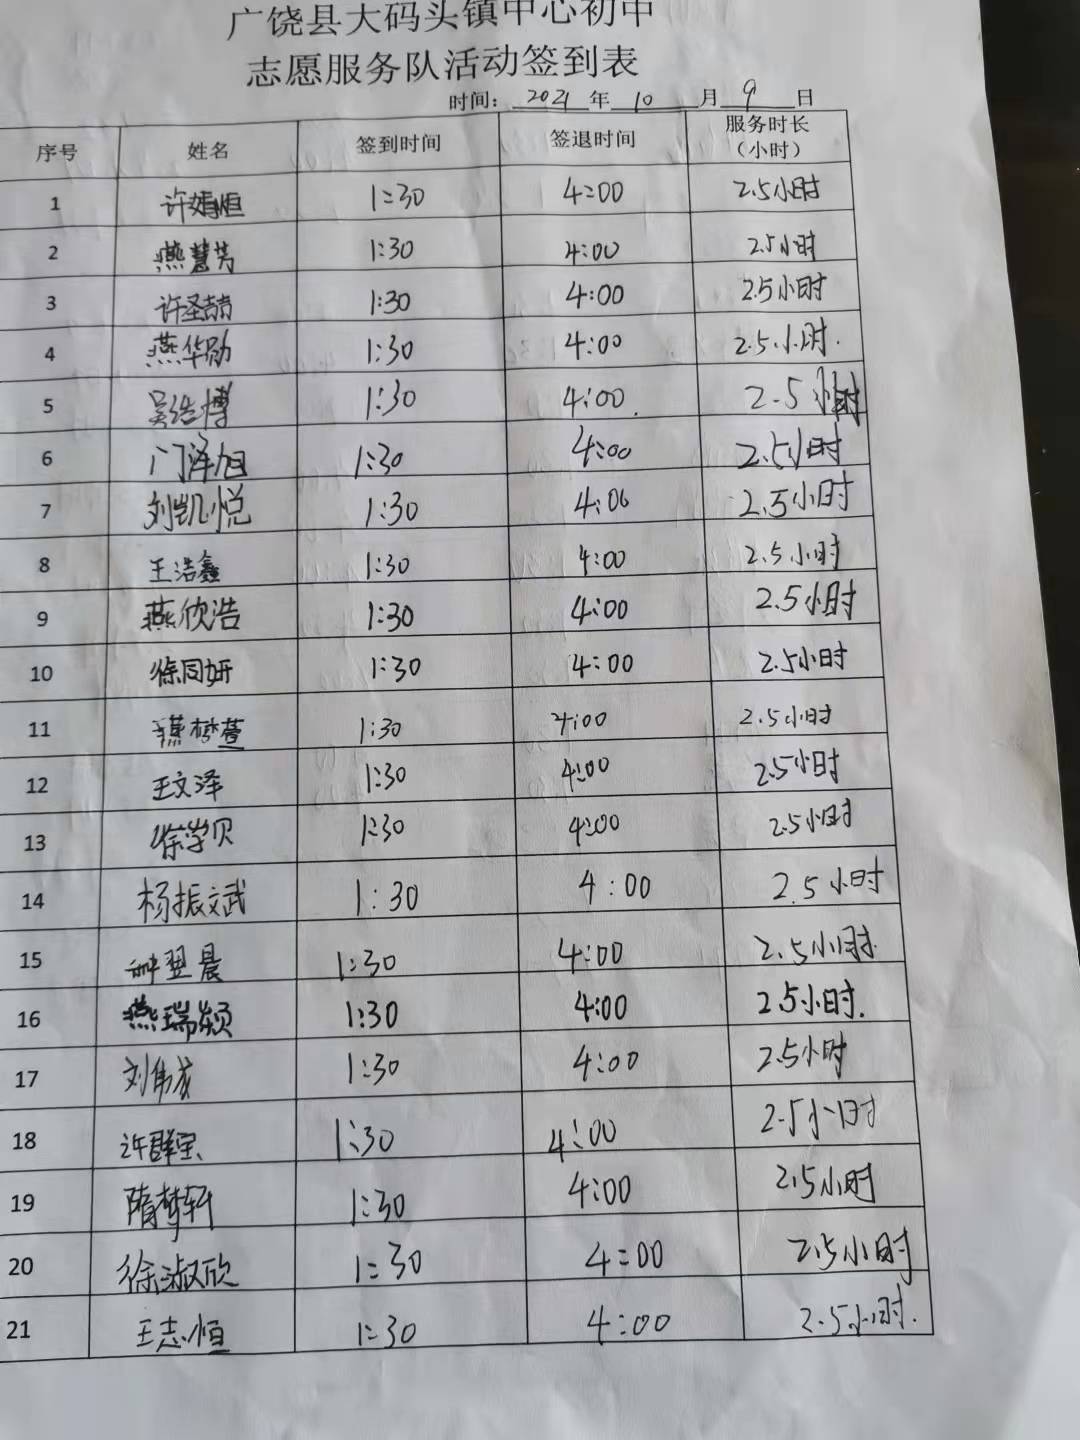 广饶县大码头镇中心初中
志愿服务队活动签到表
时间： 2021 年 10 月 9 日
序号 姓名 签到时间 签退时间 服务时长（小时）
1 许婧恒 1:30 4:00 2.5小时
2 燕慧芳 1:30 4:00 2.5小时
3 许圣喆 1:30 4:00 2.5小时
4 燕华勋 1:30 4:00 2.5小时.
5 吴浩博 1:30 4:00. 2.5小时
6 门泽旭 1:30 4:00 2.5小时
7 刘凯悦 1:30 4:00 2.5小时
8 王浩鑫 1:30 4:00 2.5小时
9 燕欣浩 1:30 4:00 2.5小时
10 徐同妍 1:30 4:00 2.5小时
11 1:30 4:00 2.5小时
12 王文泽 1:30 4:00 2.5小时
13 徐学贝 1:30 4:00 2.5小时
14 杨振文武 1:30 4:00 2.5小时
15 翌晨 1:30 4:00 2.5小时.
16 燕瑞颖 1:30 4:00 2.5小时.
17 刘伟成 1:30 4:00 2.5小时
18 许群宝 1:30 4:00 2.5小时
19 隋梦轩 1:30 4:00 2.5小时
20 徐淑欣 1:30 4:00 2.5小时
21 王志恒 1:30 4:00 2.5小时.